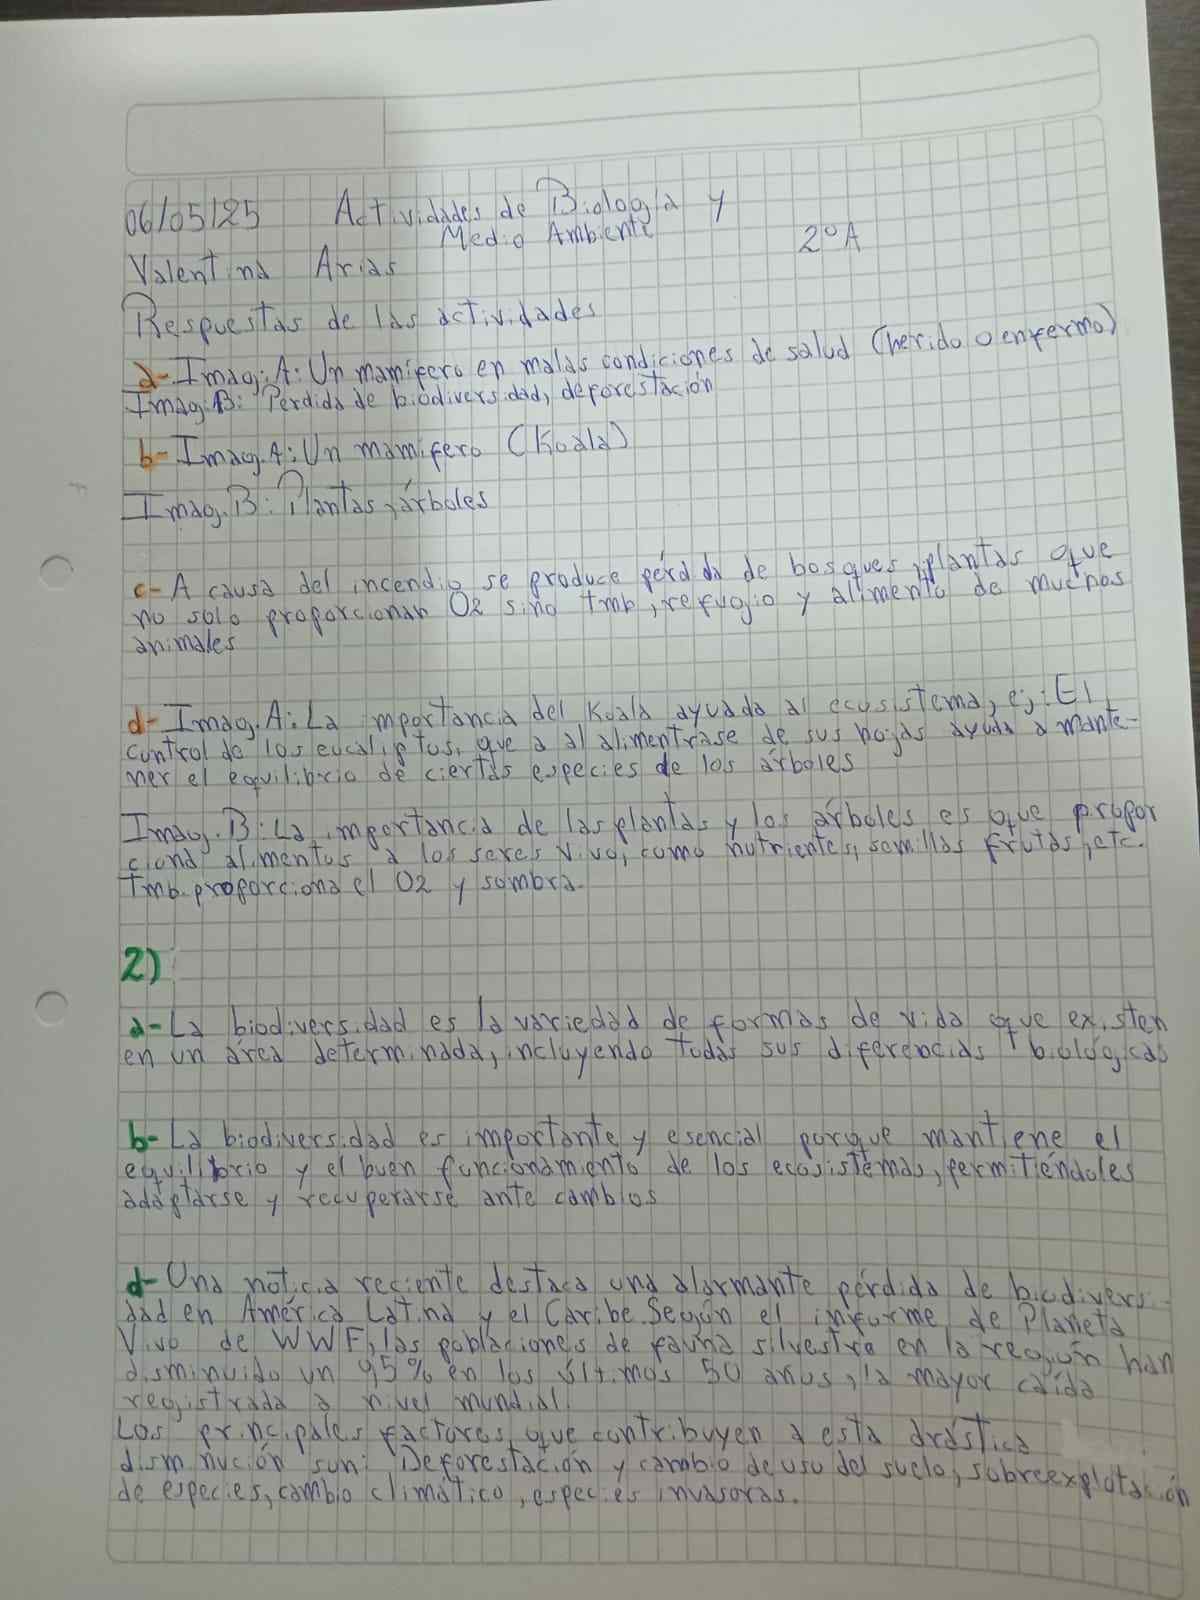 06/05/25 Actividades de Biología y
Medio Ambiente 2°A
Valentina Arias
Respuestas de las actividades
a- Imag. A: Un mamifero en malas condiciones de salud (herido o enfermo)
Imag. B: Perdida de biodiversidad, deforestación
b- Imag. A: Un mamifero (Koala)
Imag. B: Plantas, árboles
c- A causa del incendio se produce pérdida de bosques, plantas que
no solo proporcionan O2 sino tmb, refugio y alimento de muchos
animales
d- Imag. A: La importancia del Koala ayuada al ecosistema, ej: El
control de los eucaliptus, que a al alimentrase de sus hojas ayuda a mante-
ner el equilibrio de ciertas especies de los árboles
Imag. B: La importancia de las plantas y los árboles es que propor
ciona alimentos a los seres vivo, como nutrientes, semillas frutas, etc.
Tmb. proporciona el O2 y sombra.
2)
a- La biodiversidad es la variedad de formas de vida que existen
en un área determinada, incluyendo todas sus diferencias biológicas
b- La biodiversidad es importante y esencial porque mantiene el
equilibrio y el buen funcionamiento de los ecosistemas, permitiéndoles
adaptarse y recuperarse ante cambios
d- Una noticia reciente destaca una alarmante pérdida de biodiversi
dad en América Latina y el Caribe. Según el informe de Planeta
Vivo de WWF, las poblaciones de fauna silvestre en la región han
disminuido un 95% en los últimos 50 años, la mayor caída
registrada a nivel mundial.
Los principales factores que contribuyen a esta drástica
disminución son: Deforestación y cambio de uso del suelo, sobreexplotación
de especies, cambio climático, especies invasoras.